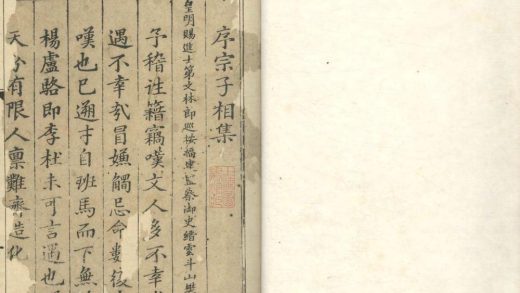 序宗子相集
皇明賜進士第文林郎巡按福建監察御史縉雲斗山樊
予稽往籍竊嘆文人多不幸
遇不幸哉冒嫌觸忌命婁
嘆也已遡才自班馬而下無
楊盧駱即李杜未可言遇也
天兮有限人稟難齊造化